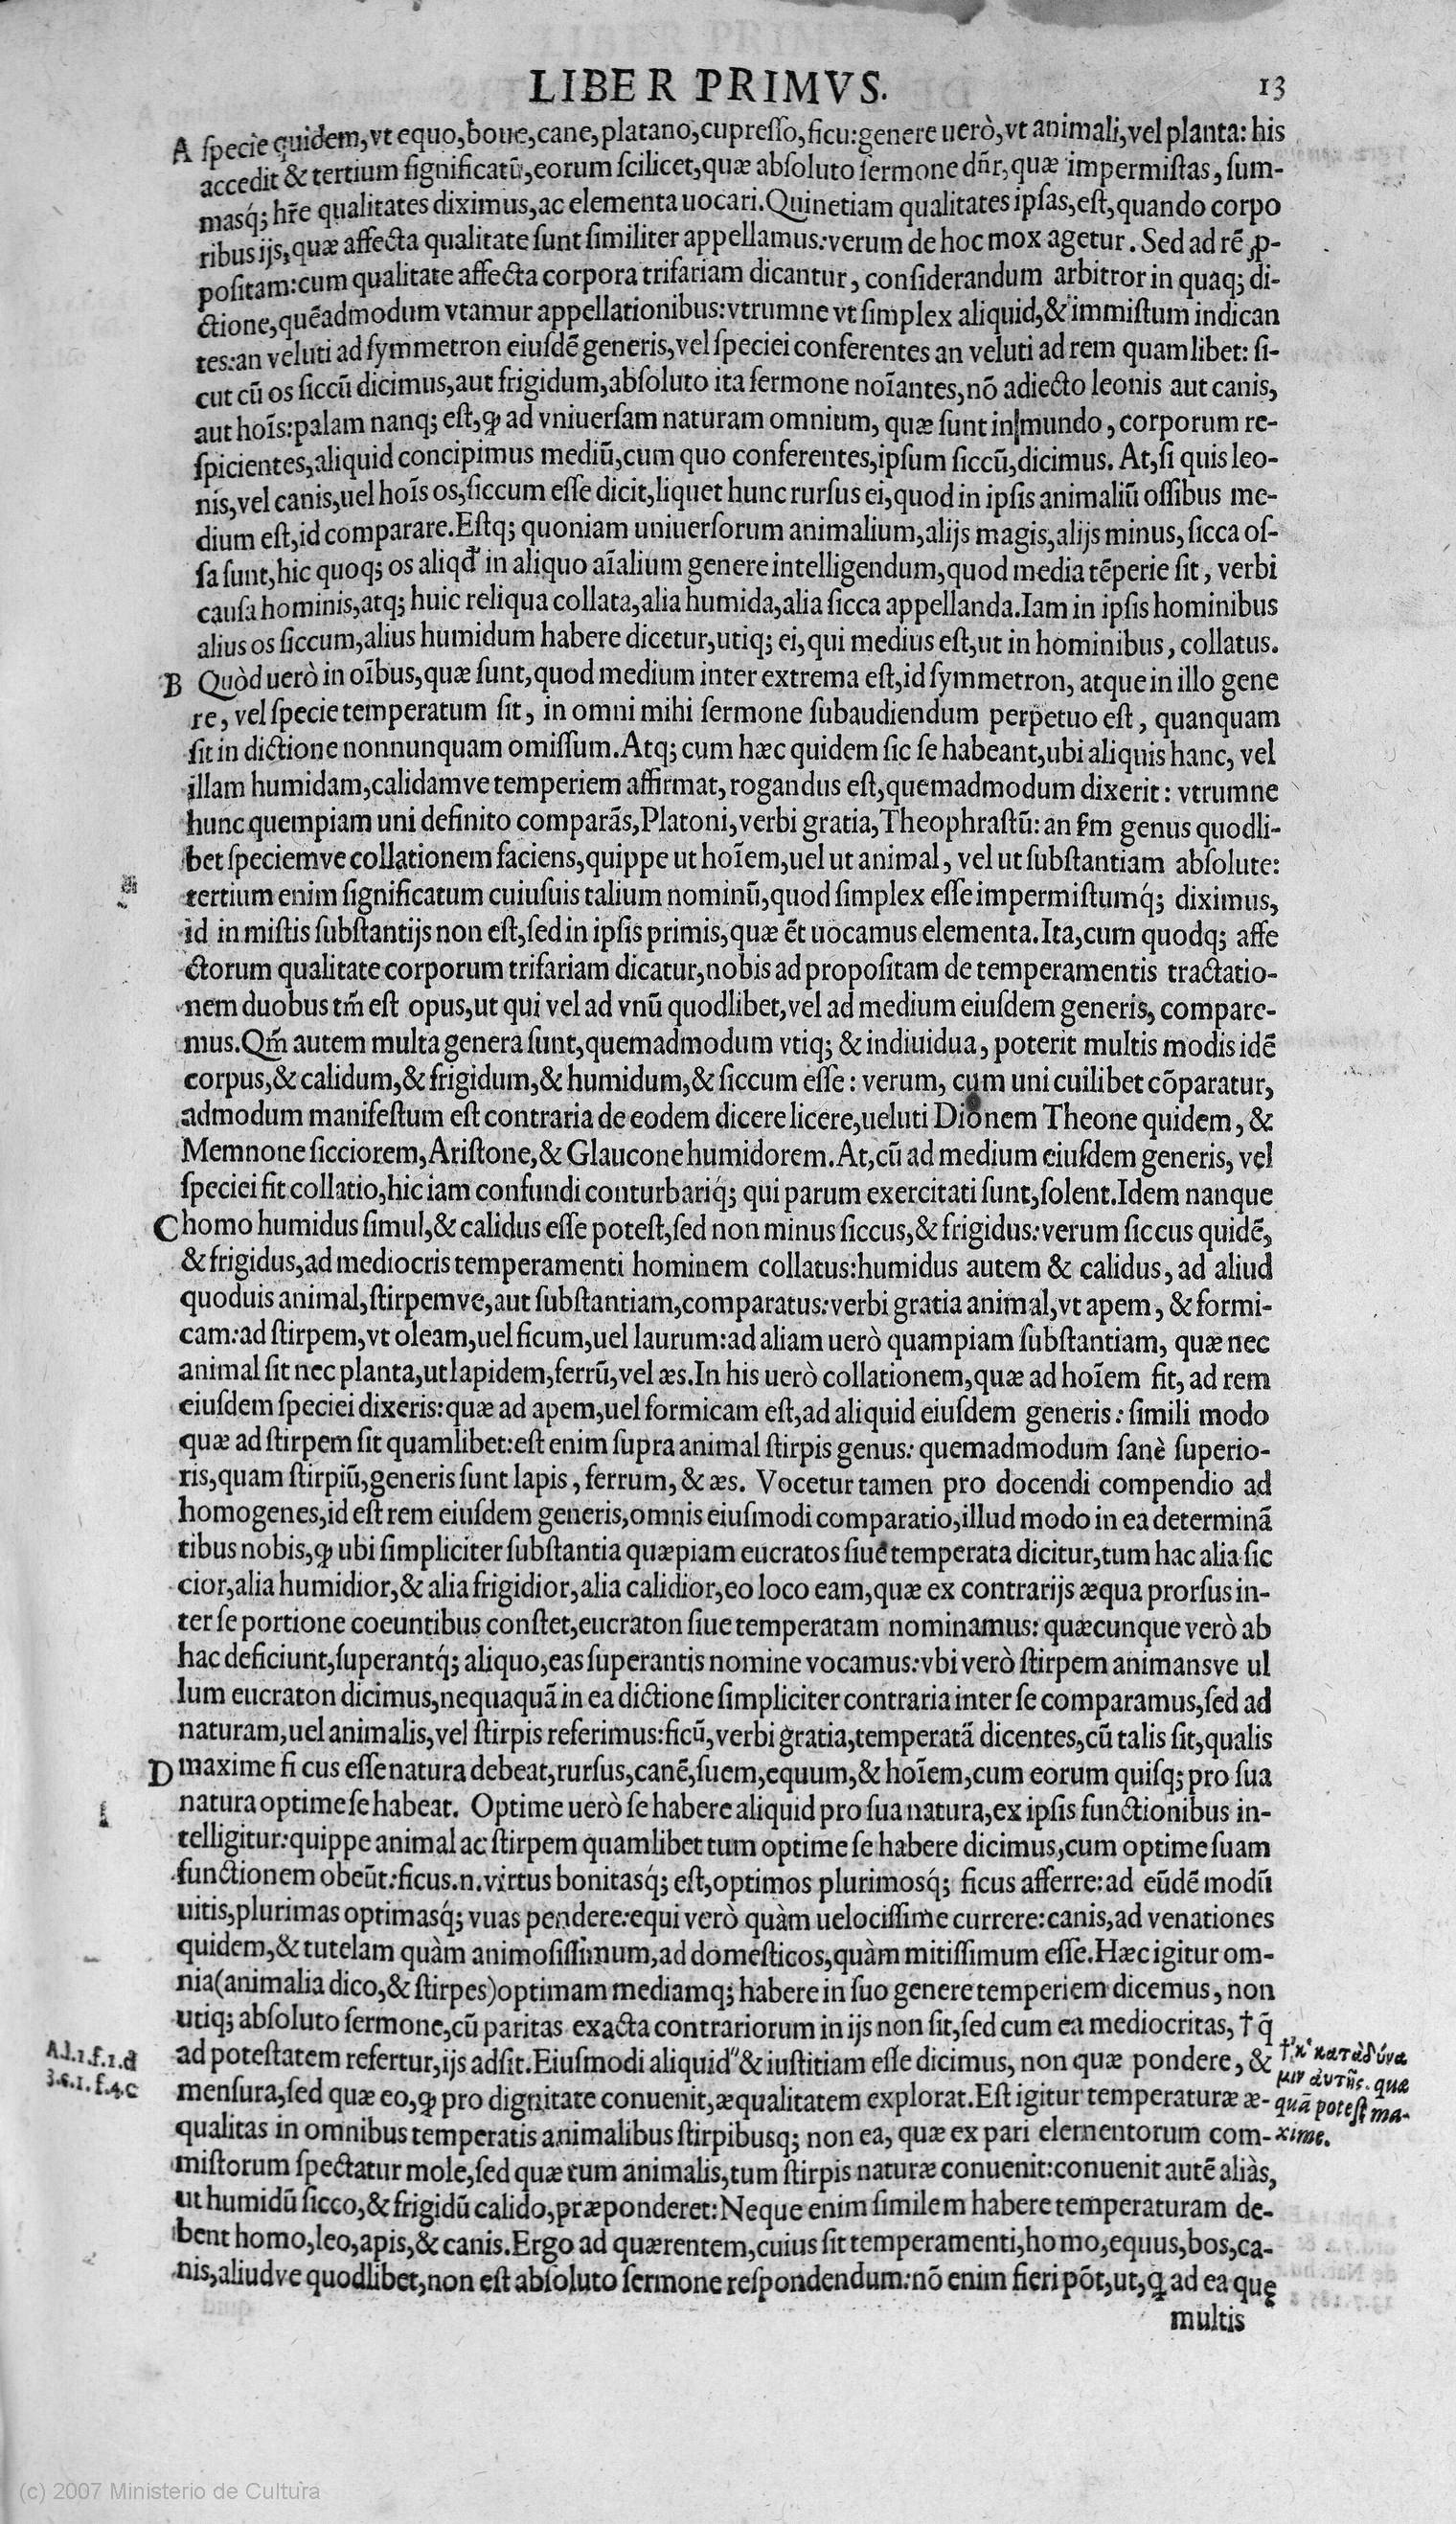 LIBER PRIMVS.
13
A ſpecie quidem,vt equo,boue,cane,platano,cupreſſo,ficu:genere uerò,vt animali,vel planta: his
accedit & tertium ſignificatū,eorum ſcilicet,quæ abſoluto ſermone dñr,quæ impermiſtas, ſum-
masq́; hr̃e qualitates diximus,ac elementa uocari.Quinetiam qualitates ipſas,eſt,quando corpo
ribus ijs,quæ affecta qualitate ſunt ſimiliter appellamus:verum de hoc mox agetur. Sed ad rē ꝓ-
poſitam:cum qualitate affecta corpora trifariam dicantur, conſiderandum arbitror in quaq; di-
ctione,quēadmodum vtamur appellationibus:vtrumne vt ſimplex aliquid,& immiſtum indican
tes:an veluti ad ſymmetron eiuſdē generis,vel ſpeciei conferentes an veluti ad rem quamlibet: ſi-
cut cū os ſiccū dicimus,aut frigidum,abſoluto ita ſermone noīantes,nō adiecto leonis aut canis,
aut hoīs:palam nanq; eſt,ꝙ ad vniuerſam naturam omnium, quæ ſunt in mundo, corporum re-
ſpicientes,aliquid concipimus mediū,cum quo conferentes,ipſum ſiccū,dicimus. At,ſi quis leo-
nis,vel canis,uel hoīs os,ſiccum eſſe dicit,liquet hunc rurſus ei,quod in ipſis animaliū oſſibus me-
dium eſt,id comparare.Eſtq; quoniam uniuerſorum animalium,alijs magis,alijs minus, ſicca oſ-
ſa ſunt,hic quoq; os aliqđ in aliquo aīalium genere intelligendum,quod media tēperie ſit, verbi
cauſa hominis,atq; huic reliqua collata,alia humida,alia ſicca appellanda.Iam in ipſis hominibus
alius os ſiccum,alius humidum habere dicetur,utiq; ei,qui medius eſt,ut in hominibus, collatus.
B Quòd uerò in oībus,quæ ſunt,quod medium inter extrema eſt,id ſymmetron, atque in illo gene
re, vel ſpecie temperatum ſit, in omni mihi ſermone ſubaudiendum perpetuo eſt, quanquam
ſit in dictione nonnunquam omiſſum.Atq; cum hæc quidem ſic ſe habeant,ubi aliquis hanc, vel
illam humidam,calidamve temperiem affirmat, rogandus eſt,quemadmodum dixerit: vtrumne
hunc quempiam uni definito comparās,Platoni,verbi gratia,Theophraſtū: an ẜm genus quodli-
bet ſpeciemve collationem faciens,quippe ut hoīem,uel ut animal, vel ut ſubſtantiam abſolute:
tertium enim ſignificatum cuiuſuis talium nominū,quod ſimplex eſſe impermiſtumq́; diximus,
id in miſtis ſubſtantijs non eſt,ſed in ipſis primis,quæ ēt uocamus elementa.Ita,cum quodq; affe
ctorum qualitate corporum trifariam dicatur,nobis ad propoſitam de temperamentis tractatio-
nem duobus tm̄ eſt opus,ut qui vel ad vnū quodlibet,vel ad medium eiuſdem generis, compare-
mus.Qm̄ autem multa genera ſunt,quemadmodum vtiq; & indiuidua, poterit multis modis idē
corpus,& calidum,& frigidum,& humidum,& ſiccum eſſe: verum, cum uni cuilibet cōparatur,
admodum manifeſtum eſt contraria de eodem dicere licere,ueluti Dionem Theone quidem, &
Memnone ſicciorem,Ariſtone,& Glaucone humidorem.At,cū ad medium eiuſdem generis, vel
ſpeciei fit collatio,hic iam confundi conturbariq́; qui parum exercitati ſunt,ſolent.Idem nanque
C homo humidus ſimul,& calidus eſſe poteſt,ſed non minus ſiccus,& frigidus:verum ſiccus quidē,
& frigidus,ad mediocris temperamenti hominem collatus:humidus autem & calidus, ad aliud
quoduis animal,ſtirpemve,aut ſubſtantiam,comparatus:verbi gratia animal,vt apem, & formi-
cam:ad ſtirpem,vt oleam,uel ficum,uel laurum:ad aliam uerò quampiam ſubſtantiam, quæ nec
animal ſit nec planta,ut lapidem,ferrū,vel æs.In his uerò collationem,quæ ad hoīem fit, ad rem
eiuſdem ſpeciei dixeris:quæ ad apem,uel formicam eſt,ad aliquid eiuſdem generis: ſimili modo
quæ ad ſtirpem ſit quamlibet:eſt enim ſupra animal ſtirpis genus: quemadmodum ſanè ſuperio-
ris,quam ſtirpiū,generis ſunt lapis, ferrum, & æs. Vocetur tamen pro docendi compendio ad
homogenes,id eſt rem eiuſdem generis,omnis eiuſmodi comparatio,illud modo in ea determinā
tibus nobis,ꝙ ubi ſimpliciter ſubſtantia quæpiam eucratos ſiue temperata dicitur,tum hac alia ſic
cior,alia humidior,& alia frigidior,alia calidior,eo loco eam,quæ ex contrarijs æqua prorſus in-
ter ſe portione coeuntibus conſtet,eucraton ſiue temperatam nominamus: quæcunque verò ab
hac deficiunt,ſuperantq́; aliquo,eas ſuperantis nomine vocamus:vbi verò ſtirpem animansve ul
lum eucraton dicimus,nequaquā in ea dictione ſimpliciter contraria inter ſe comparamus,ſed ad
naturam,uel animalis,vel ſtirpis referimus:ficū,verbi gratia,temperatā dicentes,cū talis ſit,qualis
D maxime fi cus eſſe natura debeat,rurſus,canē,ſuem,equum,& hoīem,cum eorum quiſq; pro ſua
natura optime ſe habeat. Optime uerò ſe habere aliquid pro ſua natura,ex ipſis functionibus in-
telligitur:quippe animal ac ſtirpem quamlibet tum optime ſe habere dicimus,cum optime ſuam
functionem obeūt:ficus.n.virtus bonitasq́; eſt,optimos plurimosq́; ficus afferre:ad eūdē modū
uitis,plurimas optimasq́; vuas pendere:equi verò quàm uelociſſime currere:canis,ad venationes
quidem,& tutelam quàm animoſiſſimum,ad domeſticos,quàm mitiſſimum eſſe.Hæc igitur om-
nia(animalia dico,& ſtirpes)optimam mediamq; habere in ſuo genere temperiem dicemus, non
utiq; abſoluto ſermone,cū paritas exacta contrariorum in ijs non ſit,ſed cum ea mediocritas, † q̄
ad poteſtatem refertur,ijs adſit.Eiuſmodi aliquid & iuſtitiam eſſe dicimus, non quæ pondere, &
menſura,ſed quæ eo,ꝙ pro dignitate conuenit,æqualitatem explorat.Eſt igitur temperaturæ æ-
qualitas in omnibus temperatis animalibus ſtirpibusq; non ea, quæ ex pari elementorum com-
miſtorum ſpectatur mole,ſed quæ tum animalis,tum ſtirpis naturæ conuenit:conuenit autē aliàs,
ut humidū ſicco,& frigidū calido,præponderet:Neque enim ſimilem habere temperaturam de-
bent homo,leo,apis,& canis.Ergo ad quærentem,cuius ſit temperamenti,homo,equus,bos,ca-
nis,aliudve quodlibet,non eſt abſoluto ſermone reſpondendum:nō enim fieri pōt,ut,ꝗ ad ea quę
multis
A.l.1.f.1.d
3.6.1.f.4.c
† κ̓ κατὰ δύνα
μιν αὐτῆς. quæ
quā poteſt ma-
xime.
(c) 2007 Ministerio de Cultura